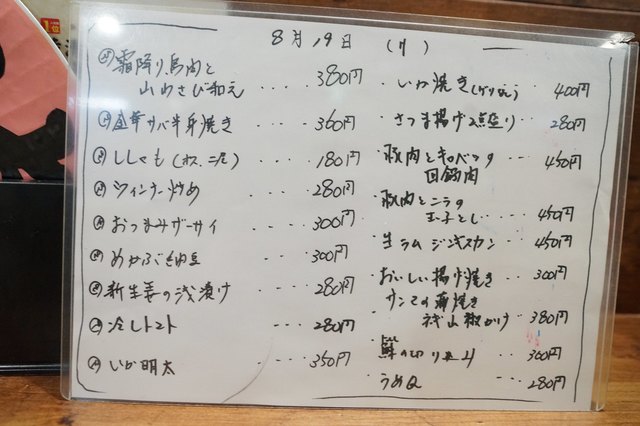 8月19日 (月)
霜降り鳥肉と
山わさび和え .... 380円
金華サバ半身焼き ... 360円
ししゃも(オス、二尾) ... 180円
ウィンナー炒め ... 280円
おつまみザーサイ ... 300円
めかぶ納豆 ... 300円
新生姜の浅漬け .... 280円
冷しトマト ---- 280円
いか明太 .... 350円
いか焼き(ゲソ) 400円
さつま揚げ2点盛り ... 280円
豚肉とキャベツの ... 450円
回鍋肉
豚肉とニラの
玉子とじ ... 450円
生ラムジンギスカン ... 450円
おいしい揚げ焼き ... 300円
サンマの蒲焼き
粉山椒かけ ... 380円
の切り込み ... 300円
うめQ --- 280円